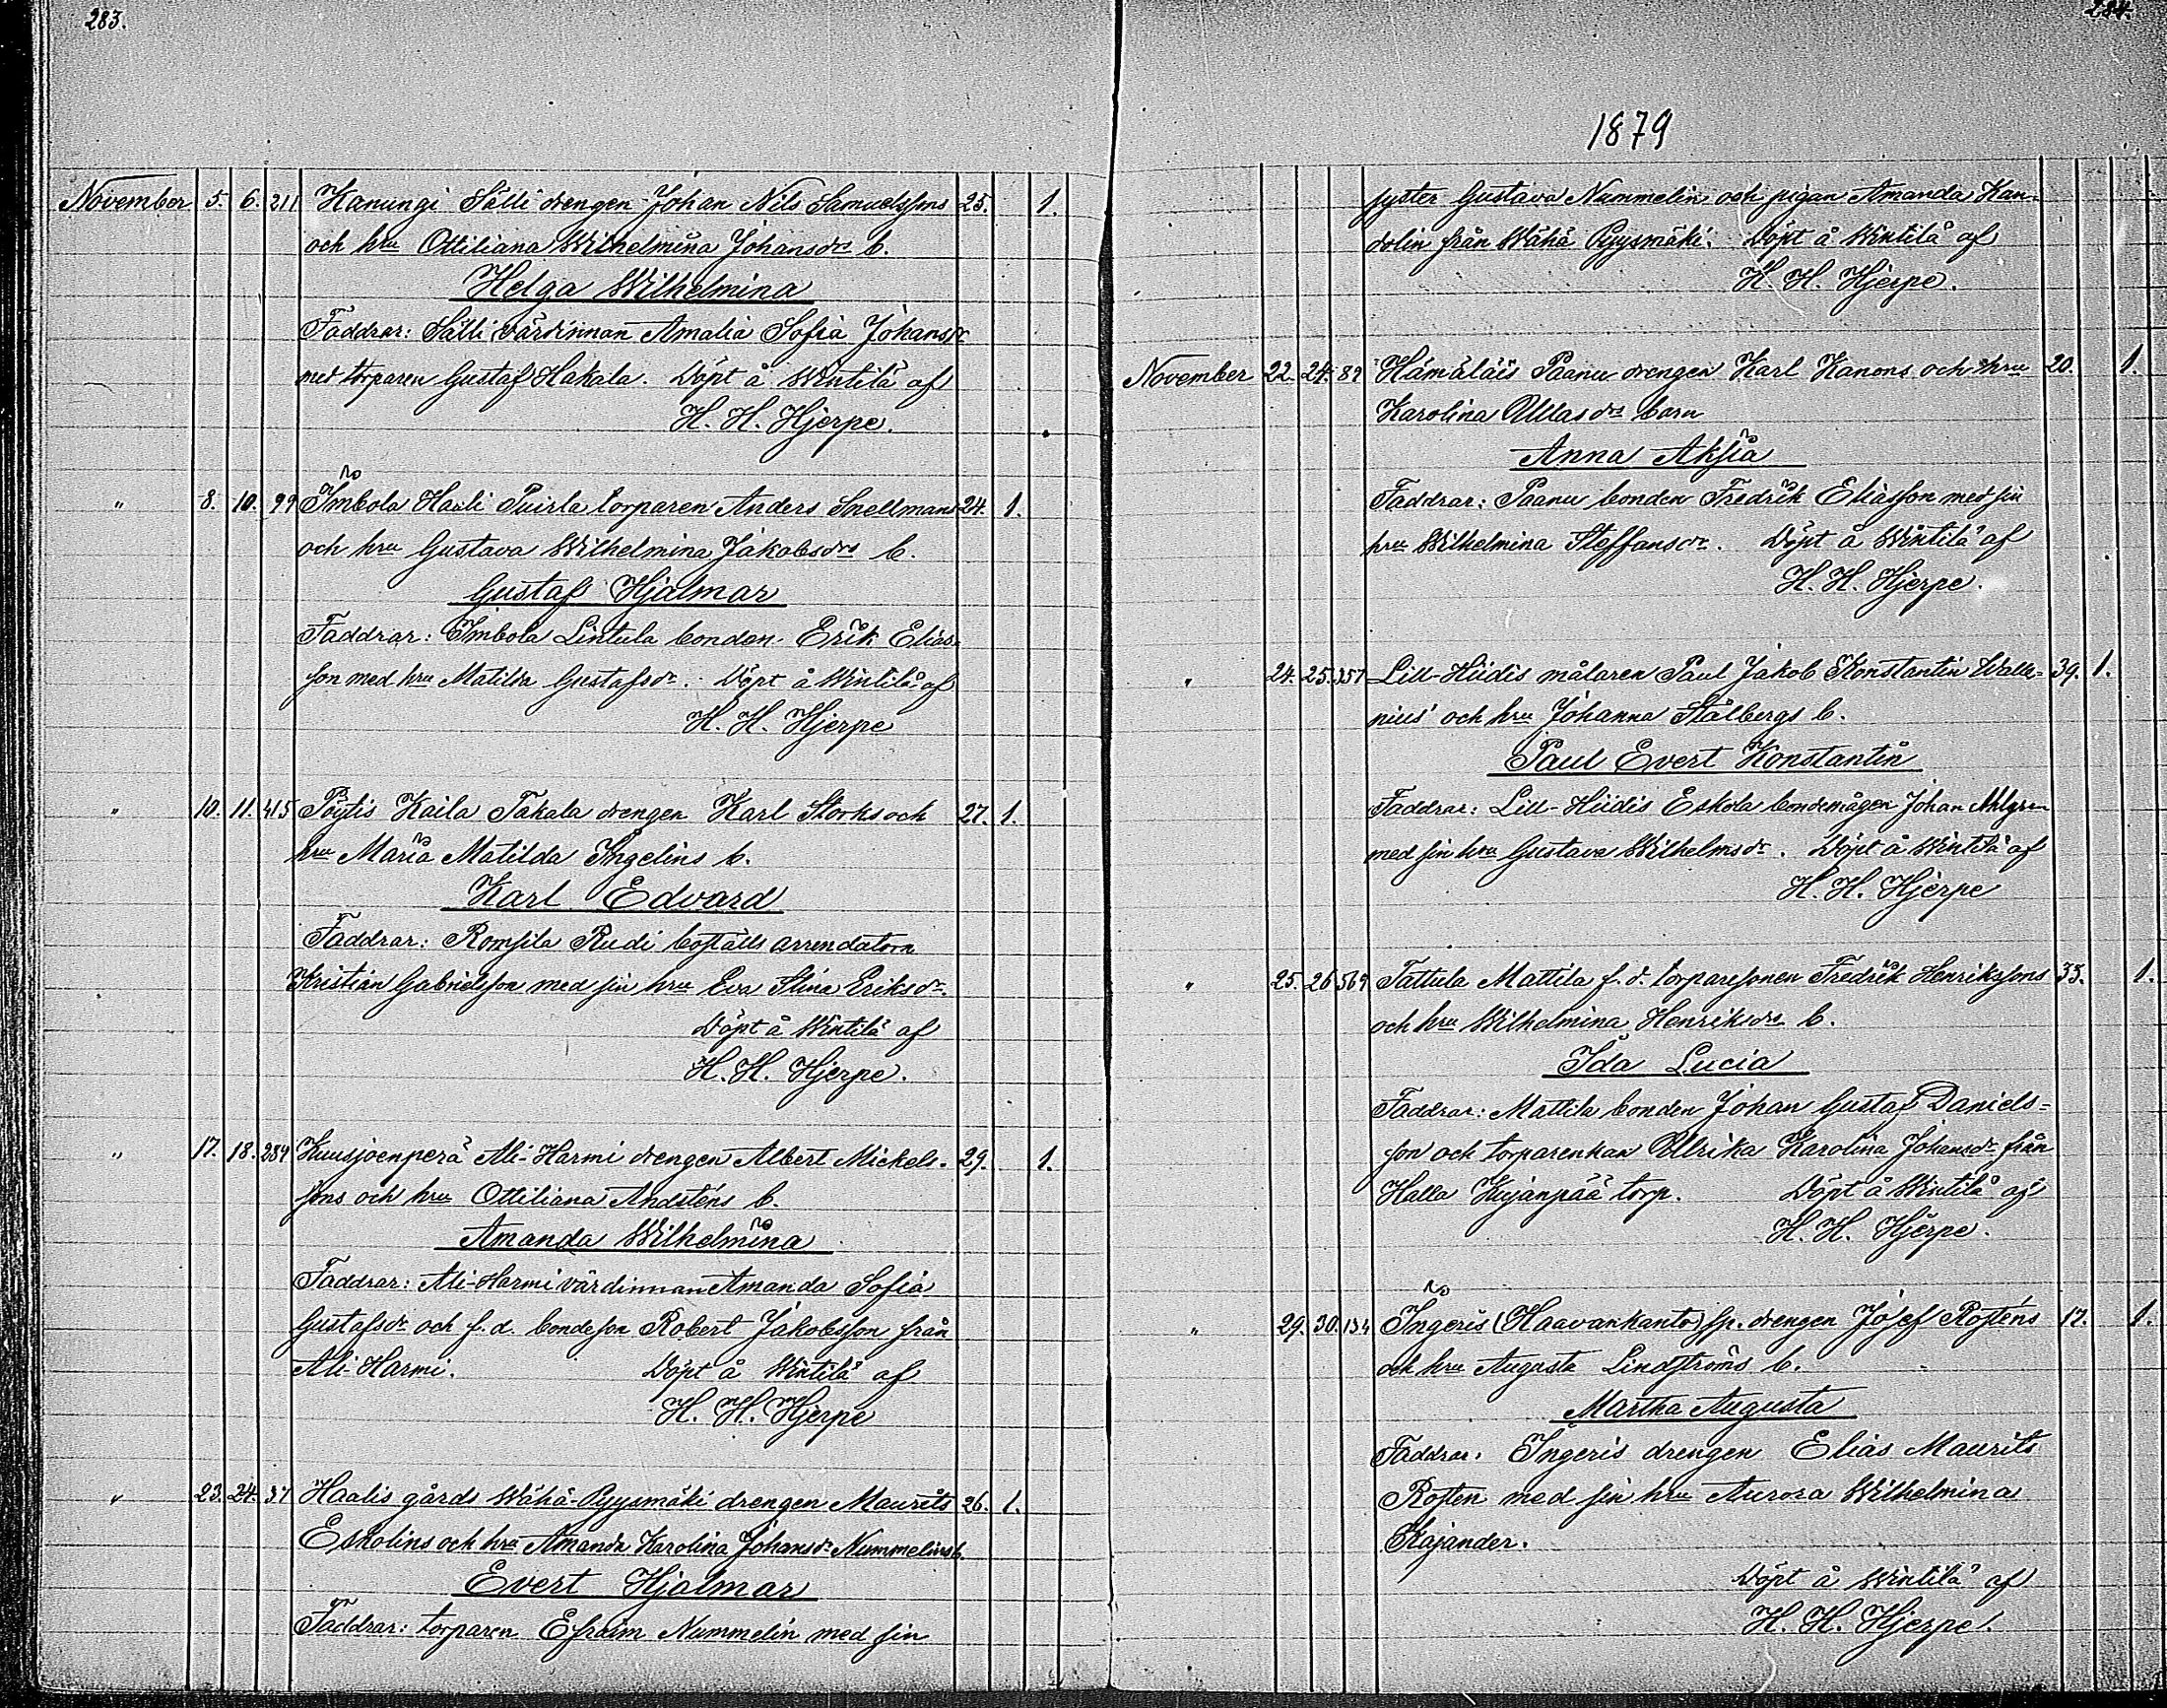 283.
November 5. 6. 211 Kanungi Sälli drengen Johan Nils Samuelssons 25. 1.
och hru Ottiliana Wilhelmina Johansdrs b.
Helga Wilhelmina
Faddrar: Sälli värdinnan Amalia Sofia Johansdr
med torparen Gustaf Hakala. Döpt å Wintilä af
H. H. Hjerpe.
" 8. 10. 99 Imbola Haali Puirla torparen Anders Snellmans 24. 1.
och hru Gustava Wilhelmina Jakobsdrs b.
Gustaf Hjalmar
Faddrar: Imbola Lintula bonden Erik Elias-
son med hru Matilda Gustafsdr. Döpt å Wintilä af
H. H. Hjerpe
" 10. 11. 415 Pöytis Kaila Takala drengen Karl Storks och 27. 1.
hru Maria Matilda Ingelins b.
Karl Edvard
Faddrar: Romsila Rudi boställs arrendatorn
Kristian Gabrielsson med sin hru Eva Stina Eriksdr.
Döpt å Wintilä af
H. H. Hjerpe.
" 17. 18. 284 Kuusjoenperä Ali-Harmi drengen Albert Mickels- 29. 1.
sons och hru Ottiliana Andsténs b.
Amanda Wilhelmina
Faddrar: Ali-Harmi värdinnan Amanda Sofia
Gustafsdr och f.d. bondeson Robert Jakobsson från
Ali-Harmi. Döpt å Wintilä af
H. H. Hjerpe
" 23. 24. 37 Haalis gårds Wähä-Pyysmäki drengen Maurits 26. 1.
Eskolins och hru Amanda Karolina Johansdr Nummelins b.
Evert Hjalmar
Faddrar: torparen Efraim Nummelin med sin
284.
1879
syster Gustava Nummelin och pigan Amanda Kan-
dolin från Wähä Pyysmäki. Döpt å Wintilä af
H. H. Hjerpe.
November 22. 24. 89 Hämäläis Paanu drengen Karl Kanons och hru 20. 1.
Karolina Ullasdrs barn
Anna Aksia
Faddrar: Paanu bonden Fredrik Eliasson med sin
hru Wilhelmina Staffansdr. Döpt å Wintilä af
H. H. Hjerpe.
" 24. 25. 357 Lill-Hiidis målaren Paul Jakob Konstantin Walle- 39. 1.
nius' och hru Johanna Stålbergs b.
Paul Evert Konstantin
Faddrar: Lill-Hiidis Eskola bondemågen Johan Ahlgren
med sin hru Gustava Wilhelmsdr. Döpt å Wintilä af
H. H. Hjerpe
" 25. 26 569 Tattula Mattila f.d. torparesonen Fredrik Henrikssons 33. 1.
och hru Wilhelmina Henriksdrs b.
Ida Lucia
Faddrar: Mattila bonden Johan Gustaf Daniels-
son och torparenkan Ulrika Karolina Johansdr från
Halla Kujanpää torp. Döpt å Wintilä af
H. H. Hjerpe.
" 29. 30. 134 Ingeris (Haavankanto) sp. drengen Josef Rosténs 17. 1.
och hru Augusta Lindströms b.
Martha Augusta
Faddrar: Ingeris drengen Elias Maurits
Rosten med sin hru Aurora Wilhelmina
Kajander.
Döpt å Wintilä af
H. H. Hjerpe.